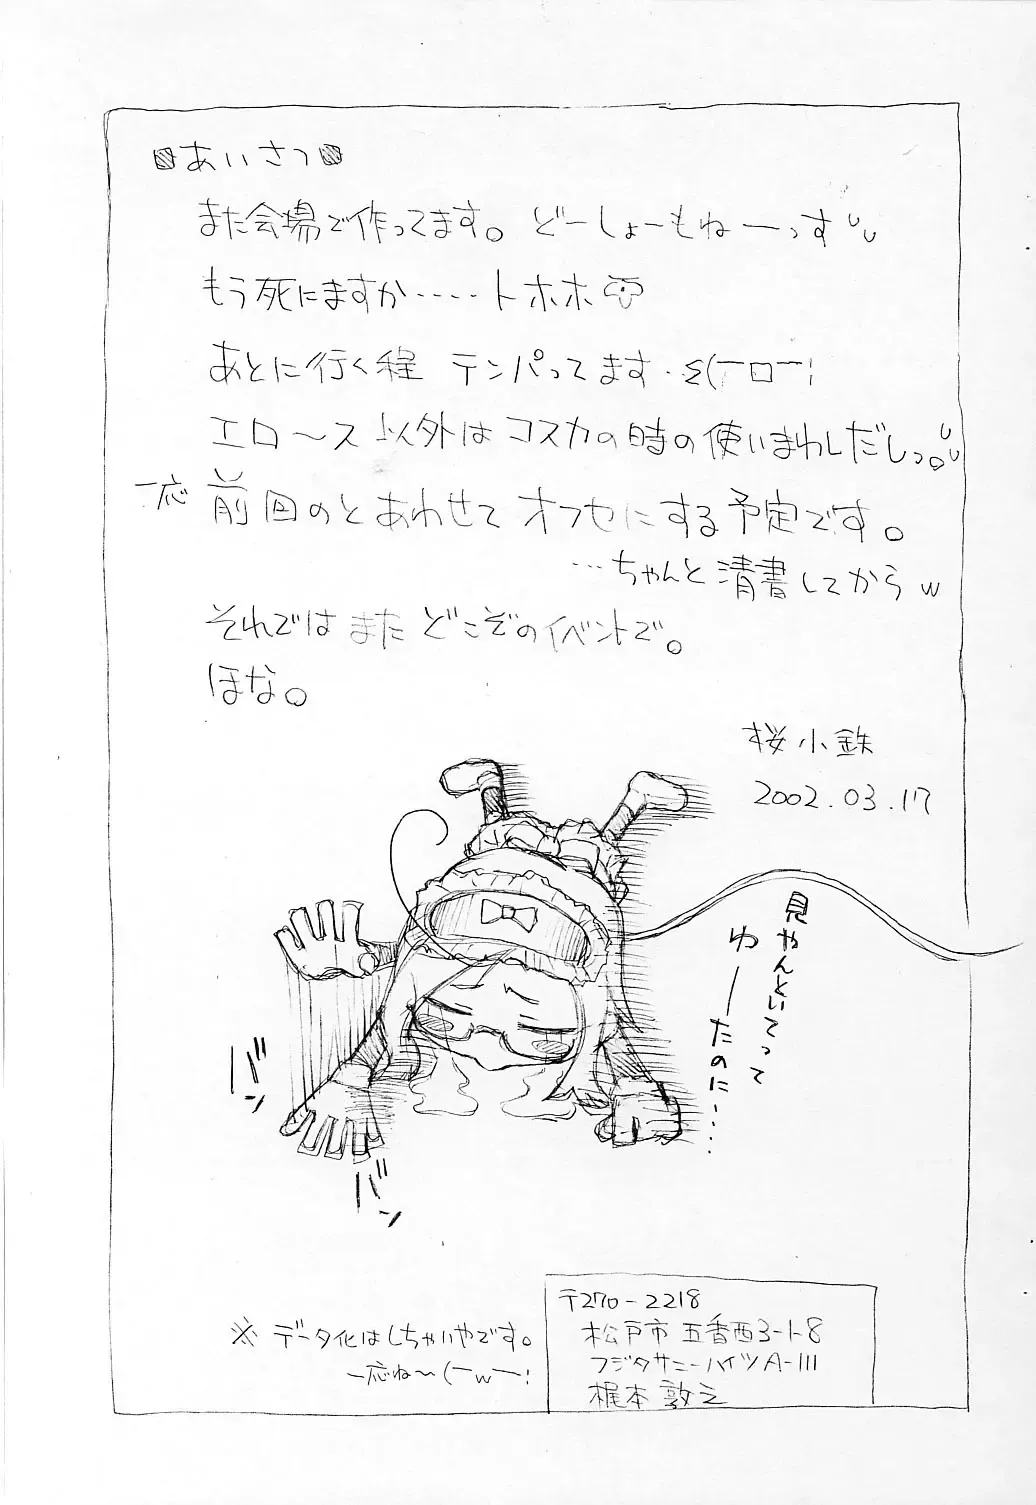 あいさつ
また会場で作ってます。どーしょーもねーっす
もう死にますか‥‥‥トホホ
あとに行く程 テンパってます・Σ(￣ロ￣;
エロ〜ス以外はコスカの時の使いまわしだしっ。
一応 前回のとあわせてオフセにする予定です。
…ちゃんと清書してからw
それではまたどこぞのイベントで。
ほな。
桜小鉄
2002.03.17
見やんといてって
ゆーたのに‥‥‥
バン
バン
※ データ化はしちゃいやです。
一応ね〜(￣w￣;
〒270-2218
松戸市五香西3-1-8
フジタサニーハイツA-111
梶本敦之